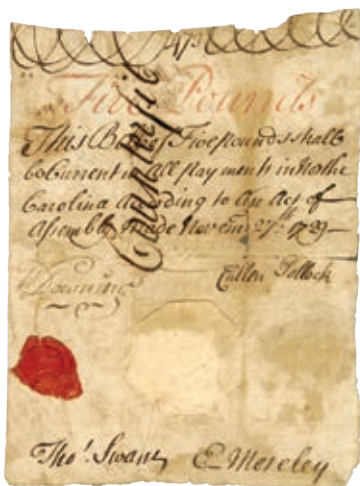 Five Pounds
This Bill of Five pounds shall
be Current in All payments in Nothe
Carolina According to An Act of
Assembly Made Novem 27th 1729
Counterfit
Downing
Cullen Pollock
Tho. Swann
E Moseley